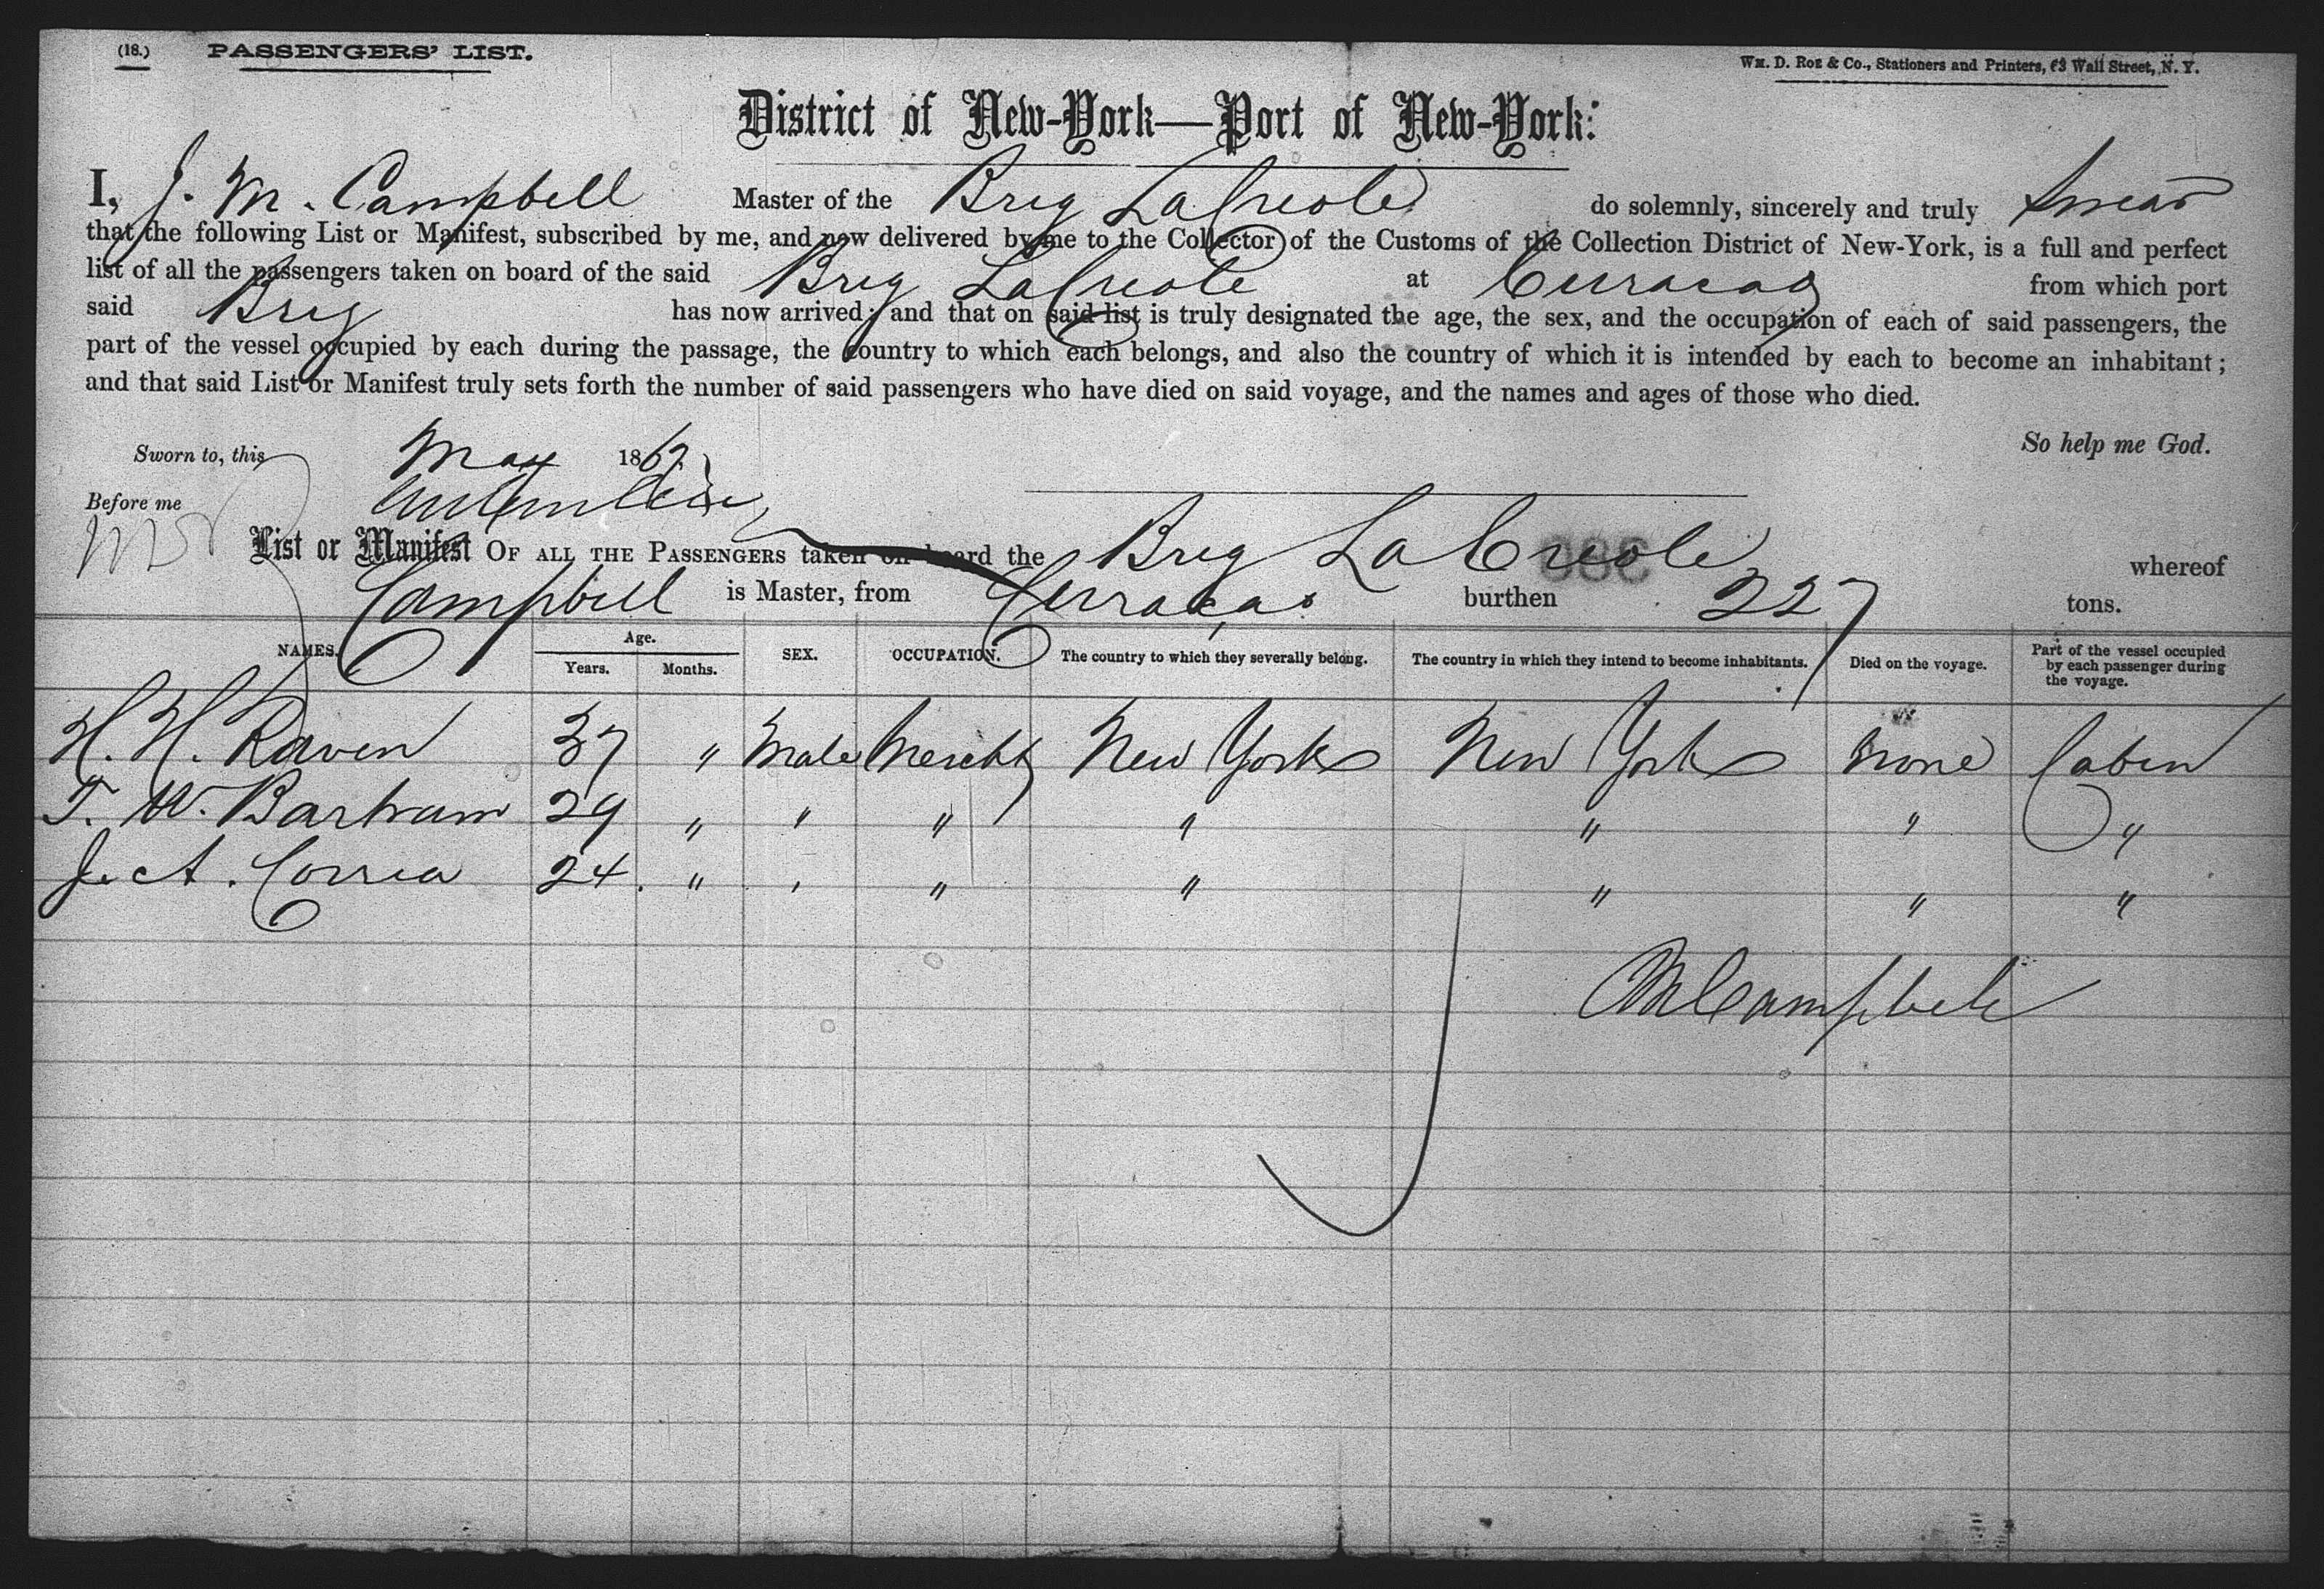 (18.) PASSENGERS' LIST.
WM. D. ROE & Co., Stationers and Printers, 63 Wall Street, N. Y.
District of New-York—Port of New-York:
I, J. M. Campbell Master of the Brig La Creole do solemnly, sincerely and truly Swear
that the following List or Manifest, subscribed by me, and now delivered by me to the Collector of the Customs of the Collection District of New-York, is a full and perfect
list of all the passengers taken on board of the said Brig La Creole at Curacao from which port
said Brig has now arrived; and that on said list is truly designated the age, the sex, and the occupation of each of said passengers, the
part of the vessel occupied by each during the passage, the country to which each belongs, and also the country of which it is intended by each to become an inhabitant;
and that said List or Manifest truly sets forth the number of said passengers who have died on said voyage, and the names and ages of those who died.
So help me God.
Sworn to, this May 186
Before me
List or Manifest OF ALL THE PASSENGERS taken on board the Brig La Creole whereof
Campbell is Master, from Curacao burthen 227 tons.
NAMES. Age. Years. Months. SEX. OCCUPATION. The country to which they severally belong. The country in which they intend to become inhabitants. Died on the voyage. Part of the vessel occupied by each passenger during the voyage.
H. H. Raven 37 " Male Mercht New York New York None Cabin
T. W. Bartram 29 " " " " " " "
J. A. Correa 24. " " " " " " "
J M Campbell